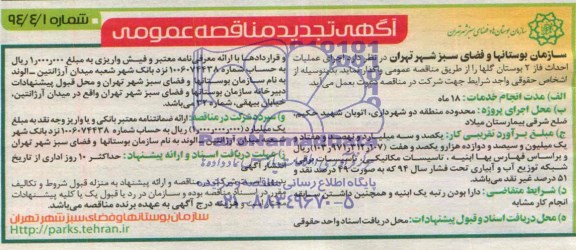 شماره ۹۴/۴/۱
آگهی تجدید مناقصه عمومی
سازمان بوستانها و فضای سبز شهر تهران
سازمان بوستانها و فضای سبز شهر تهران در نظر دارد اجرای عملیات
احداث فاز ۲ بوستان گلها را از طریق مناقصه عمومی واگذار نماید. بدینوسیله از
اشخاص حقوقی واجد شرایط جهت شرکت در مناقصه دعوت بعمل می آید.
الف) مدت انجام خدمات: ۱۸ ماه
ب) محل اجرای پروژه: محدوده منطقه دو شهرداری، اتوبان شهید حکیم،
ضلع شرقی بیمارستان میلاد
ج) مبلغ برآورد تقریبی کار: یکصد و سه میلیارد
یک میلیون و سیصد و دوازده هزار و یکصد و هفت
و براساس فهارس بها ابنیه، تاسیسات مکانیکی،
شبکه توزیع آب و آبیاری تحت فشار سال ۹۴ که به صورت ۴۹ درصد نقد و
۵۱ درصد غیر نقد می باشد.
د) شرایط متقاضی: دارا بودن رتبه یک ابنیه و همچنین داشتن سابقه
انجام کار مشابه
ه) محل دریافت اسناد و قبول پیشنهادات: محل دریافت اسناد واحد حقوقی
و قراردادها با ارائه معرفی نامه معتبر و فیش واریزی به مبلغ ۱،۰۰۰،۰۰۰ ریال
به حساب شماره ۱۰۰۶۰۷۴۴۳۸ نزد بانک شهر شعبه میدان آرژانتین ـ الوند
به نام سازمان بوستانها و فضای سبز شهر تهران و محل قبول پیشنهادات
دبیرخانه سازمان بوستانها و فضای سبز شهر تهران واقع در میدان آرژانتین،
خیابان بیهقی، شماره ۳۳ می باشد.
و) سپرده شرکت در مناقصه: ارائه ضمانتنامه معتبر بانکی و یا واریز وجه نقد به مبلغ
ریال به حساب شماره ۱۰۰۶۰۷۴۴۳۸ نزد بانک شهر
الوند به نام سازمان بوستانها و فضای سبز شهر تهران
ز) مهلت دریافت اسناد و ارائه پیشنهاد: حداکثر ۱۰ روز اداری از تاریخ
انتشار آگهی
مناقصه و ارائه پیشنهاد به منزله قبول شروط و تکالیف
بوده و سازمان در رد یا قبول یک یا کلیه پیشنهادات
هزینه درج آگهی به عهده برنده مناقصه می باشد.
سازمان بوستانها و فضای سبز شهر تهران
Http://parks.tehran.ir
پایگاه اطلاع رسانی
۰۲۱-۸۸۳۴۹۶۷۰-۵